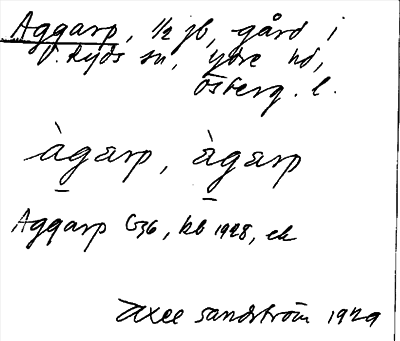 Aggarp, 1/2 jb, gård i
V. Ryds sn, Ydre hd,
Österg. l.
àgarp, àgarp
Aggarp G36, kb 1928, ek
Axel Sandström 1929